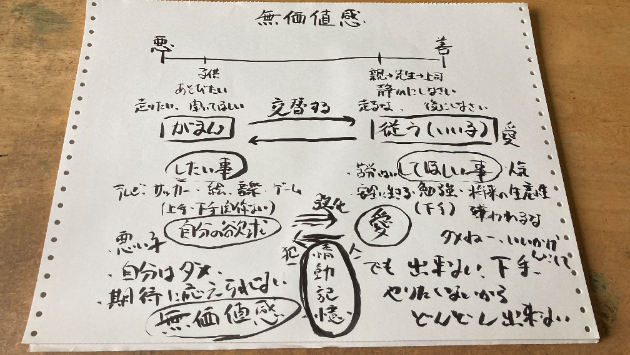 無価値感
悪 善
子供 親・先生・上司
あそびたい 静かにしなさい
走りたい、聞いてほしい 走るな、後にしなさい
がまん 交替する 従う(いい子) 愛
したい事 してほしい事
テレビ、サッカー、絵、ゲーム 安全に生きる、勉強、将来の生産性
(上手・下手関係ない) (下手) 嫌われるな
自分の欲求 強化 愛
悪い子 ダメねー、いいかげんにして
犯人
情動記憶
・自分はダメ、 でも出来ない、下手、
・期待に応えられない やりたくないから
無価値感 どんどん出来ない